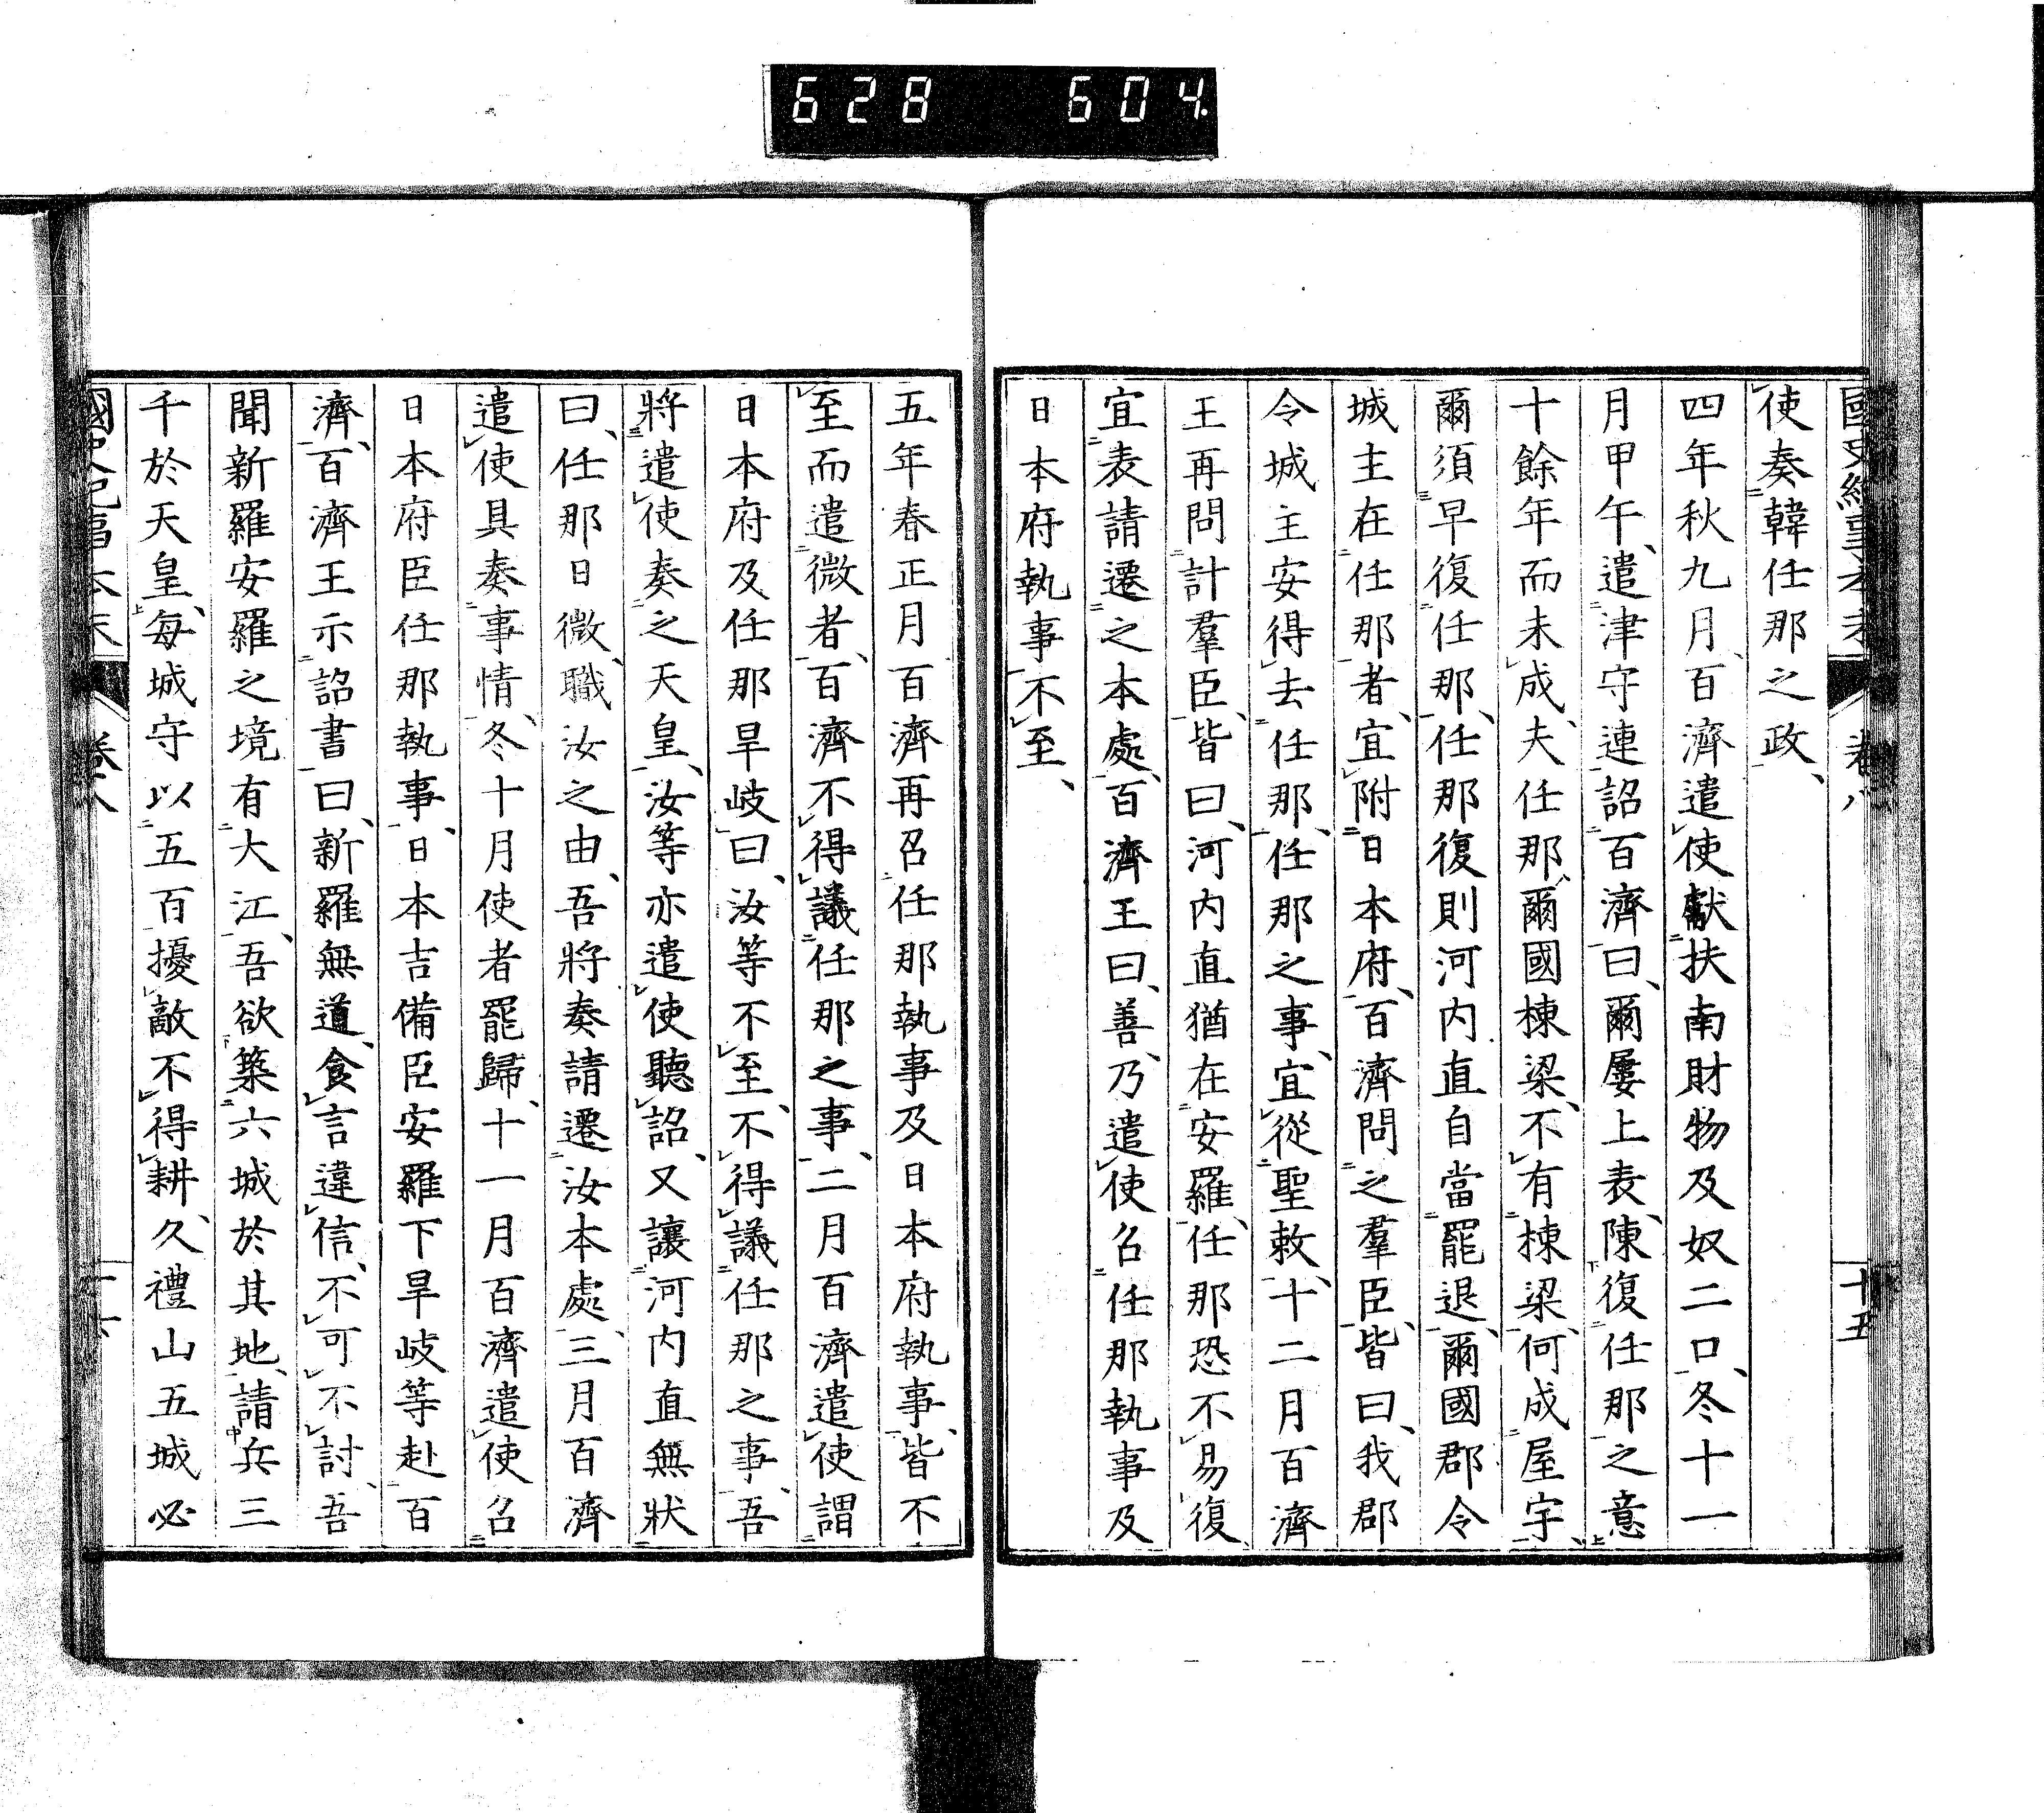 628 604
國史紀事本末 卷八 十五
使奏韓任那之政、
四年秋九月、百濟遣使獻扶南財物及奴二口、冬十一
月甲午、遣津守連詔百濟曰、爾屢上表、陳復任那之意
十餘年而未成、夫任那爾國棟梁、不有棟梁、何成屋宇、
爾須早復任那、任那復則河内直自當罷退、爾國郡令
城主在任那者、宜附日本府、百濟問之羣臣、皆曰、我郡
令城主安得去任那、任那之事、宜從聖敕、十二月百濟
王再問計羣臣、皆曰、河内直猶在安羅、任那恐不易復
宜表請遷之本處、百濟王曰、善、乃遣使召任那執事及
日本府執事、不至、
五年春正月百濟再召任那執事及日本府執事、皆不
至而遣微者、百濟不得議任那之事、二月百濟遣使謂
日本府及任那旱岐曰、汝等不至、不得議任那之事、吾
將遣使奏之天皇、汝等亦遣使聽詔、又讓河内直無狀
曰、任那日微、職汝之由、吾將奏請遷汝本處、三月百濟
遣使具奏事情、冬十月使者罷歸、十一月百濟遣使召
日本府臣任那執事、日本吉備臣安羅下旱岐等赴百
濟、百濟王示詔書曰、新羅無道、食言違信、不可不討、吾
聞新羅安羅之境有大江、吾欲築六城於其地、請兵三
千於天皇、每城守以五百擾敵不得耕、久禮山五城必
國史紀事本末 卷八